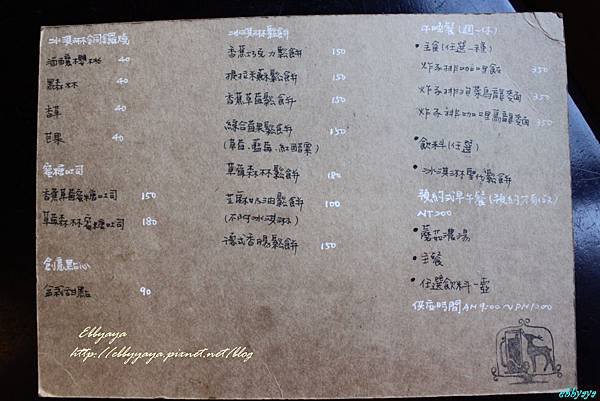 冰淇淋銅鑼燒
酒釀櫻桃 40
黑森林 40
香草 40
芒果 40
蜜糖吐司
香蕉草莓蜜糖吐司 150
草莓森林蜜糖吐司 180
創意點心
盆栽甜點 90
冰淇淋鬆餅
香蕉巧克力鬆餅 150
提拉米蘇鬆餅 150
香蕉草莓鬆餅 150
綜合莓果鬆餅 150
(草莓、藍莓、紅醋栗)
草莓森林鬆餅 180
芝麻奶油鬆餅 100
(不附冰淇淋)
德式香腸鬆餅 150
午晚餐(週一休)
•主食(任選一種)
炸豬排咖哩飯 350
炸豬排 烏龍麵 350
炸豬排咖哩烏龍麵 350
•飲料(任選)
•冰淇淋聖代鬆餅
預約式早午餐(預約only)
NT300
•蘑菇濃湯
•主餐
•任選飲料一壺
供應時間AM9:00~PM1:00
Ebbyaya
http://ebbyyaya.pixnet.net/blog
ebbyaya